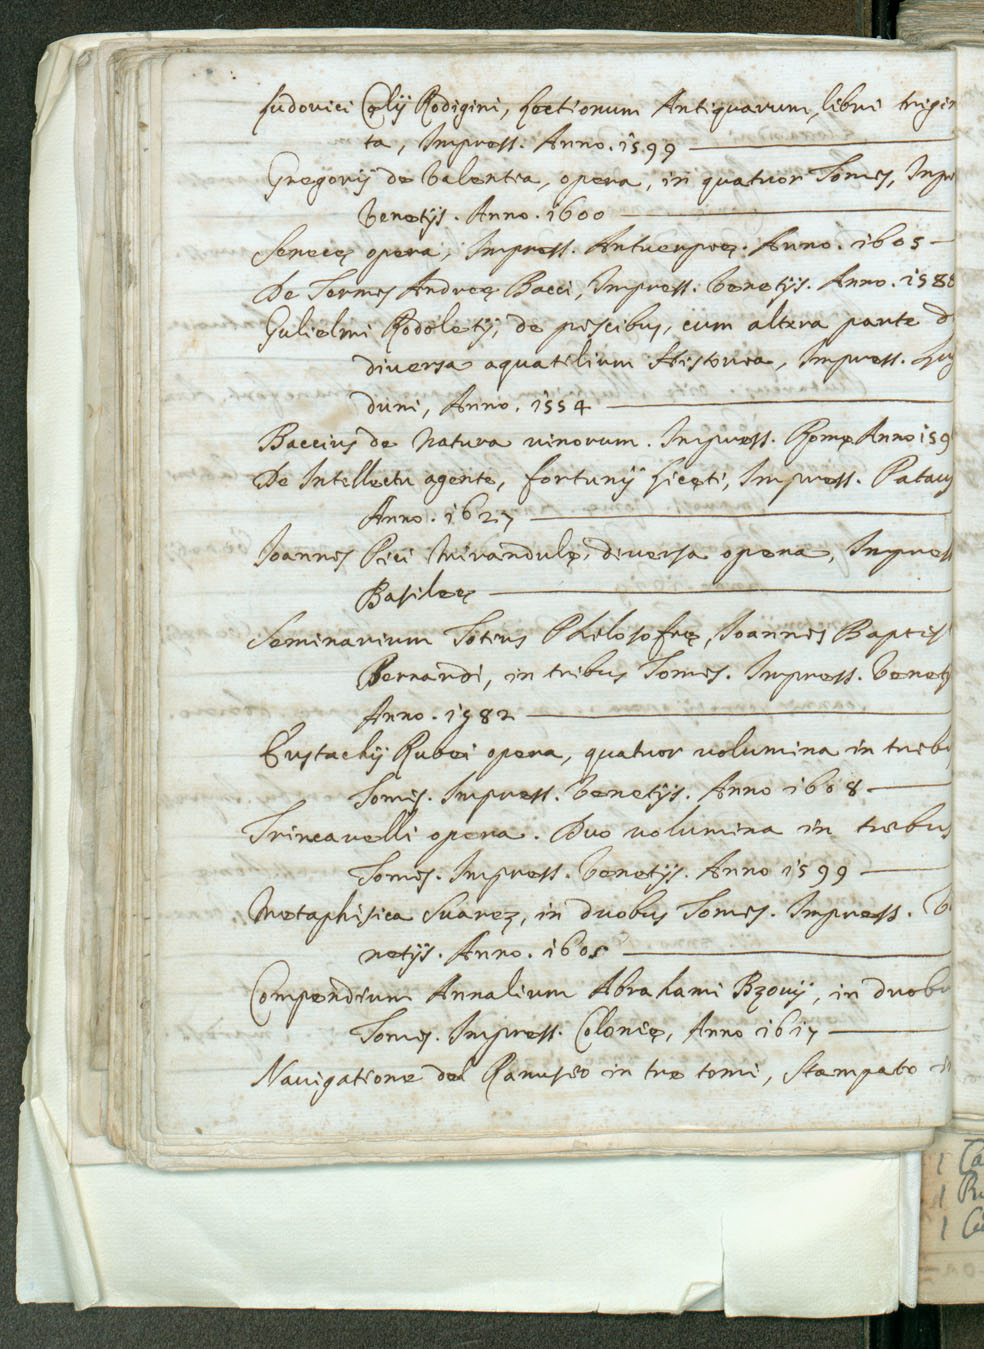 Ludovici Cęlij Rodigini, Lectionum Antiquarum, libri trigin
ta, Impress. Anno. 1599
Gregorij de Valentia, opera, in quatuor Tomis, Impr
Venetijs. Anno. 1600
Senecę opera, Impress. Antuerpię. Anno. 1605
De Termis Andreę Bacci, Impress. Venetijs. Anno. 1588
Gulielmi Rodoletij, de piscibus, cum altera parte d
diversa aquatilium Historia, Impress. Lug
duni, Anno. 1554
Baccius de Natura vinorum. Impress. Romę Anno 159
De Intellectu agente, fortunij Liceti, Impress. Patavij
Anno. 1627
Joannis Pici Mirandulę, diversa opera, Impress
Basileę
Seminarium Totius Philosofię, Joannis Baptis
Bernardi, in tribus Tomis. Impress. Venetij
Anno. 1582
Eustachij Rubei opera, quatuor volumina in tribu
Tomis. Impress. Venetijs. Anno 1608
Trincavelli opera. Duo volumina in tribus
Tomis. Impress. Venetijs. Anno 1599
Metaphisica Suarez, in duobus Tomis. Impress. Ve
netijs. Anno. 1605
Compendium Annalium Abrahami Bzovij, in duobu
Tomis. Impress. Colonię, Anno 1617
Navigatione del Ramusio in tre tomi, Stampato in
1 Ca
1 Ru
1